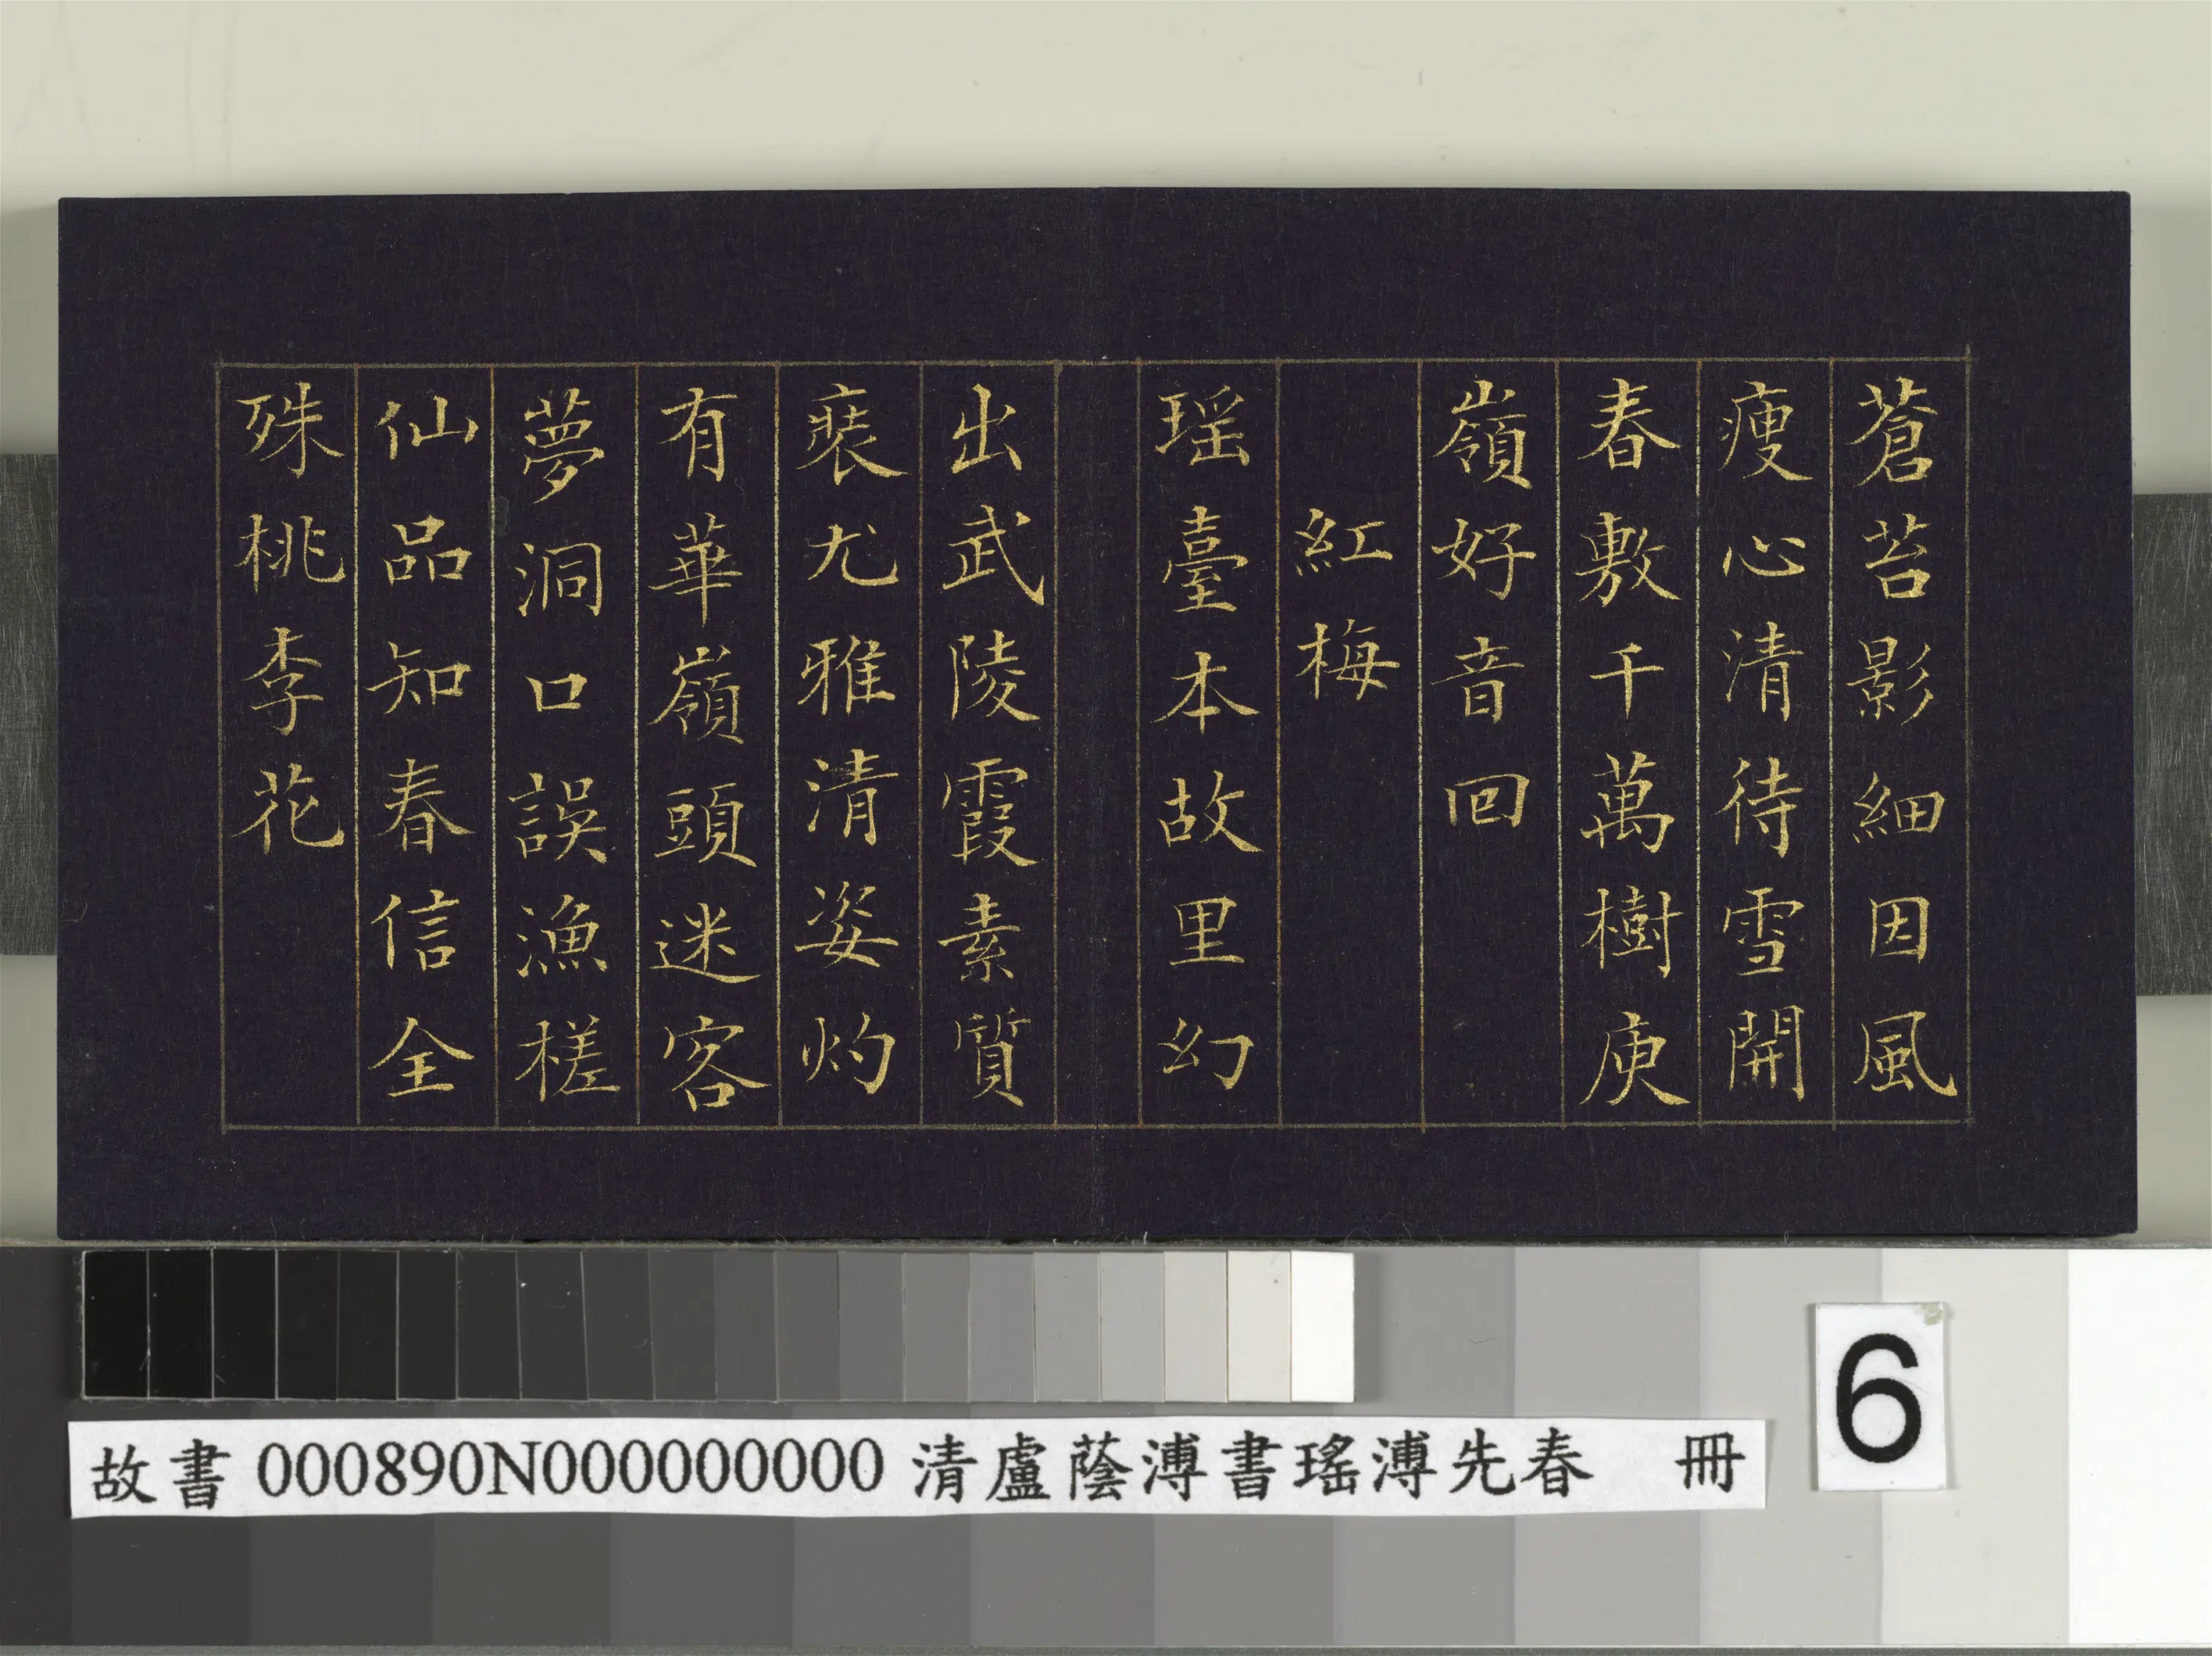 蒼苔影細因風
瘦心清待雪開
春敷千萬樹庾
嶺好音回
紅梅
瑶臺本故里幻
出武陵霞素質
裵尤雅清姿灼
有華嶺頭迷客
夢洞口誤漁槎
仙品知春信全
殊桃李花
6
故書000890N000000000 清盧蔭溥書瑤溥先春 冊